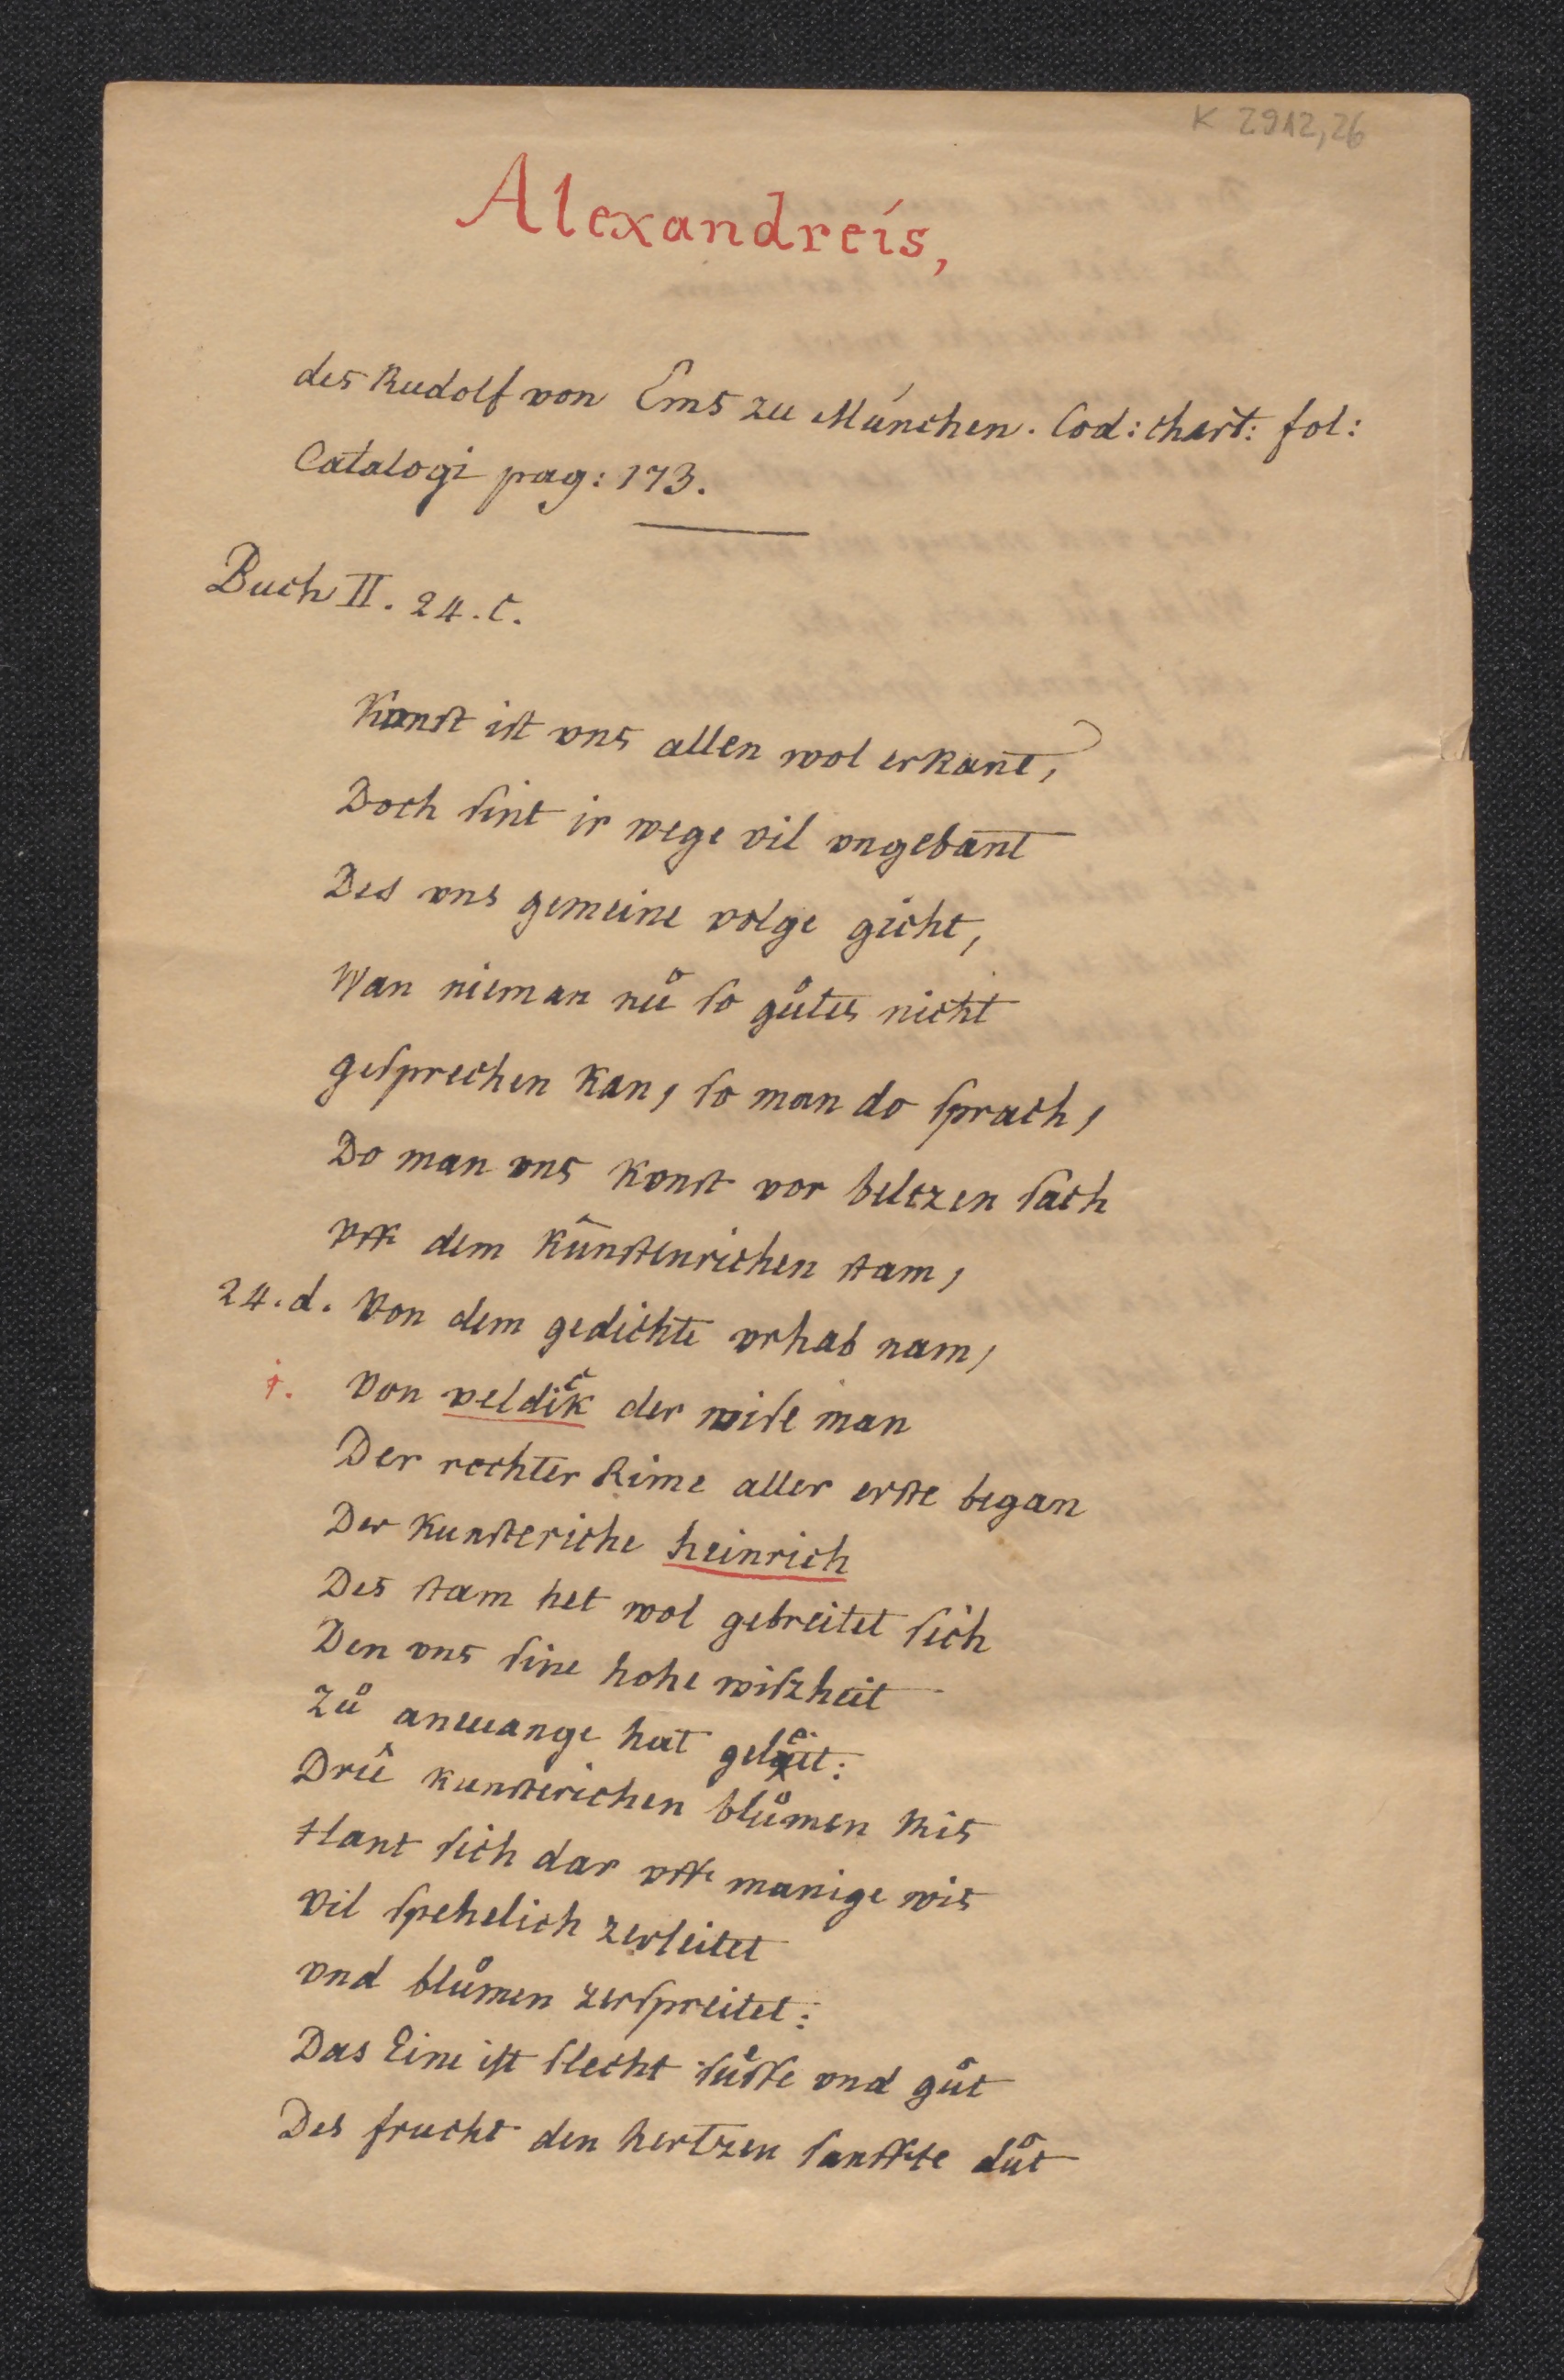 K 2912,26
Alexandreis,
des Rudolf von Ems zu München. Cod: chart: fol:
Catalogi pag: 173.
Buch II. 24. c.
Kunſt iſt vns allen wol erkant,
Doch ſint ir wege vil vngebant
Des vns gemeine volge gicht,
Wan nieman nů ſo gůtes nicht
geſprechen kan, ſo man do ſprach,
Do man vns konſt vor beltzen ſach
vff dem kûnſtenrichen ſtam,
24. d. Von dem gedichte vrhab nam,
1. von veldik der wiſe man
Der rechter Rime aller erſte began
Der kunſteriche heinrich
Des ſtam het wol gebreitet ſich
Den vns ſine hohe wiſzheit
zů aneuange hat geleit:
Drû kunſterichen blůmen Ris
Hant ſich dar vff manige wis
vil ſpehelich zerleitet
vnd blůmen zerſpreitet:
Das Eine iſt ſlecht ſuͤſſe vnd gůt
Des frucht den hertzen ſanffte důt